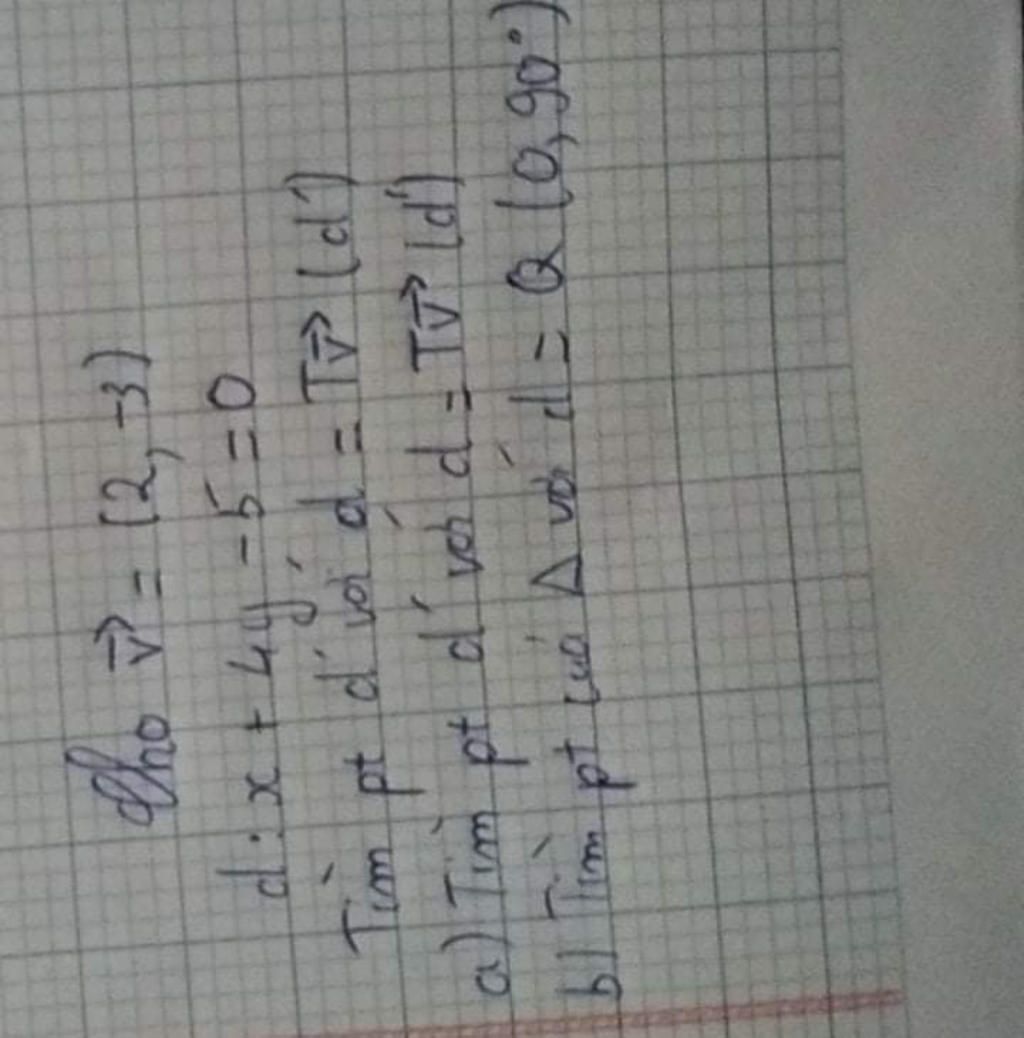 Cho v⃗ = (2, -3)
d: x + 4y - 5 = 0
Tìm pt d' với d = Tv⃗ (d')
a) Tìm pt d' với d = Tv⃗ (d')
b) Tìm pt của Δ với d = Q (O, 90°)